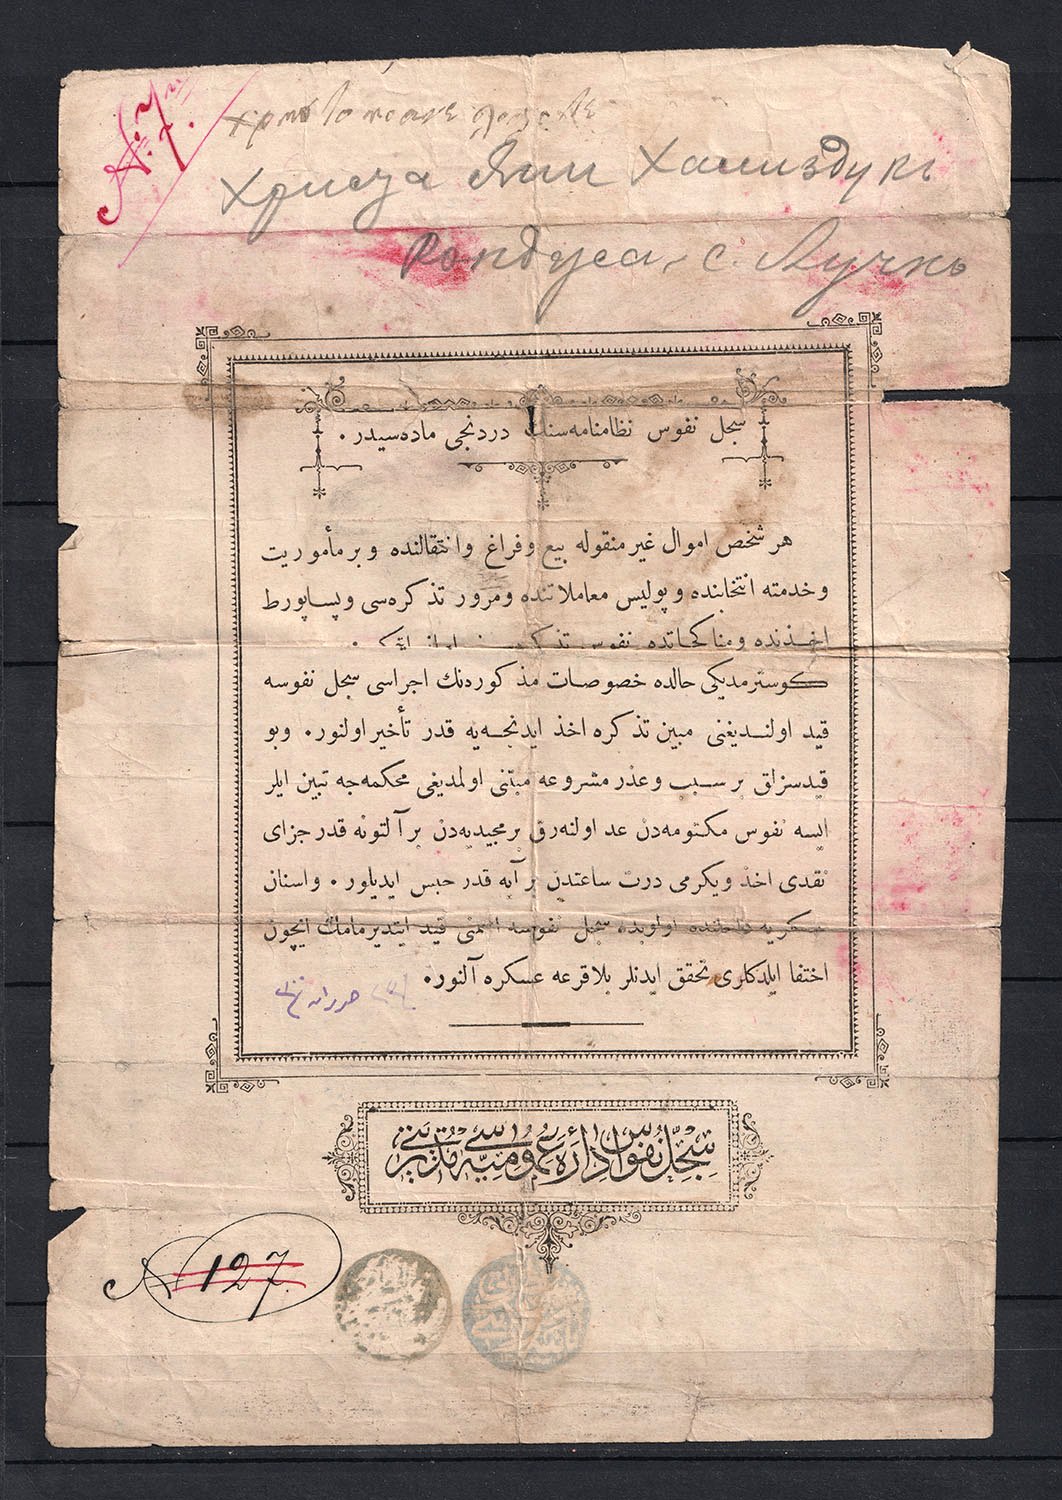 № 7
Христа Яни
с. Лучкъ
سجل نفوس نظامنامه‌سنك دردنجی ماده‌سیدر ٠
هر شخص اموال غیر منقوله بیع و فراغ وانتقالنده و بر مأموریت
وخدمته انتخابنده و پولیس معاملاتنده و مرور تذكره‌سی و پساپورط
اخذنده و مناكحاتده نفوس
كوسترمدیكی حالده خصوصات مذكوره‌نك اجراسی سجل نفوسه
قید اولندیغنی مبین تذكره اخذ ایدنجه‌یه قدر تأخیر اولنور ٠ وبو
قیدسزلق بر سبب وعذر مشروعه مبتنی اولمدیغی محكمه‌جه تبین ایلر
ایسه نفوس مكتومه‌دن عد اولنه‌رق بر مجیدیه‌دن بر آلتونه قدر جزای
نقدی اخذ ویكرمی درت ساعتدن بر آیه قدر حبس ایدیلور ٠ واسنان
عسكریه داخلنده اولوبده سجل نفوسه اسمنی قید ایتدیرمامك ایچون
اختفا ایلدكلری تحقق ایدنلر بلاقرعه عسكره آلنور ٠
سِجِلِّ نفوس اداره عمومیه‌سی
№ 127.